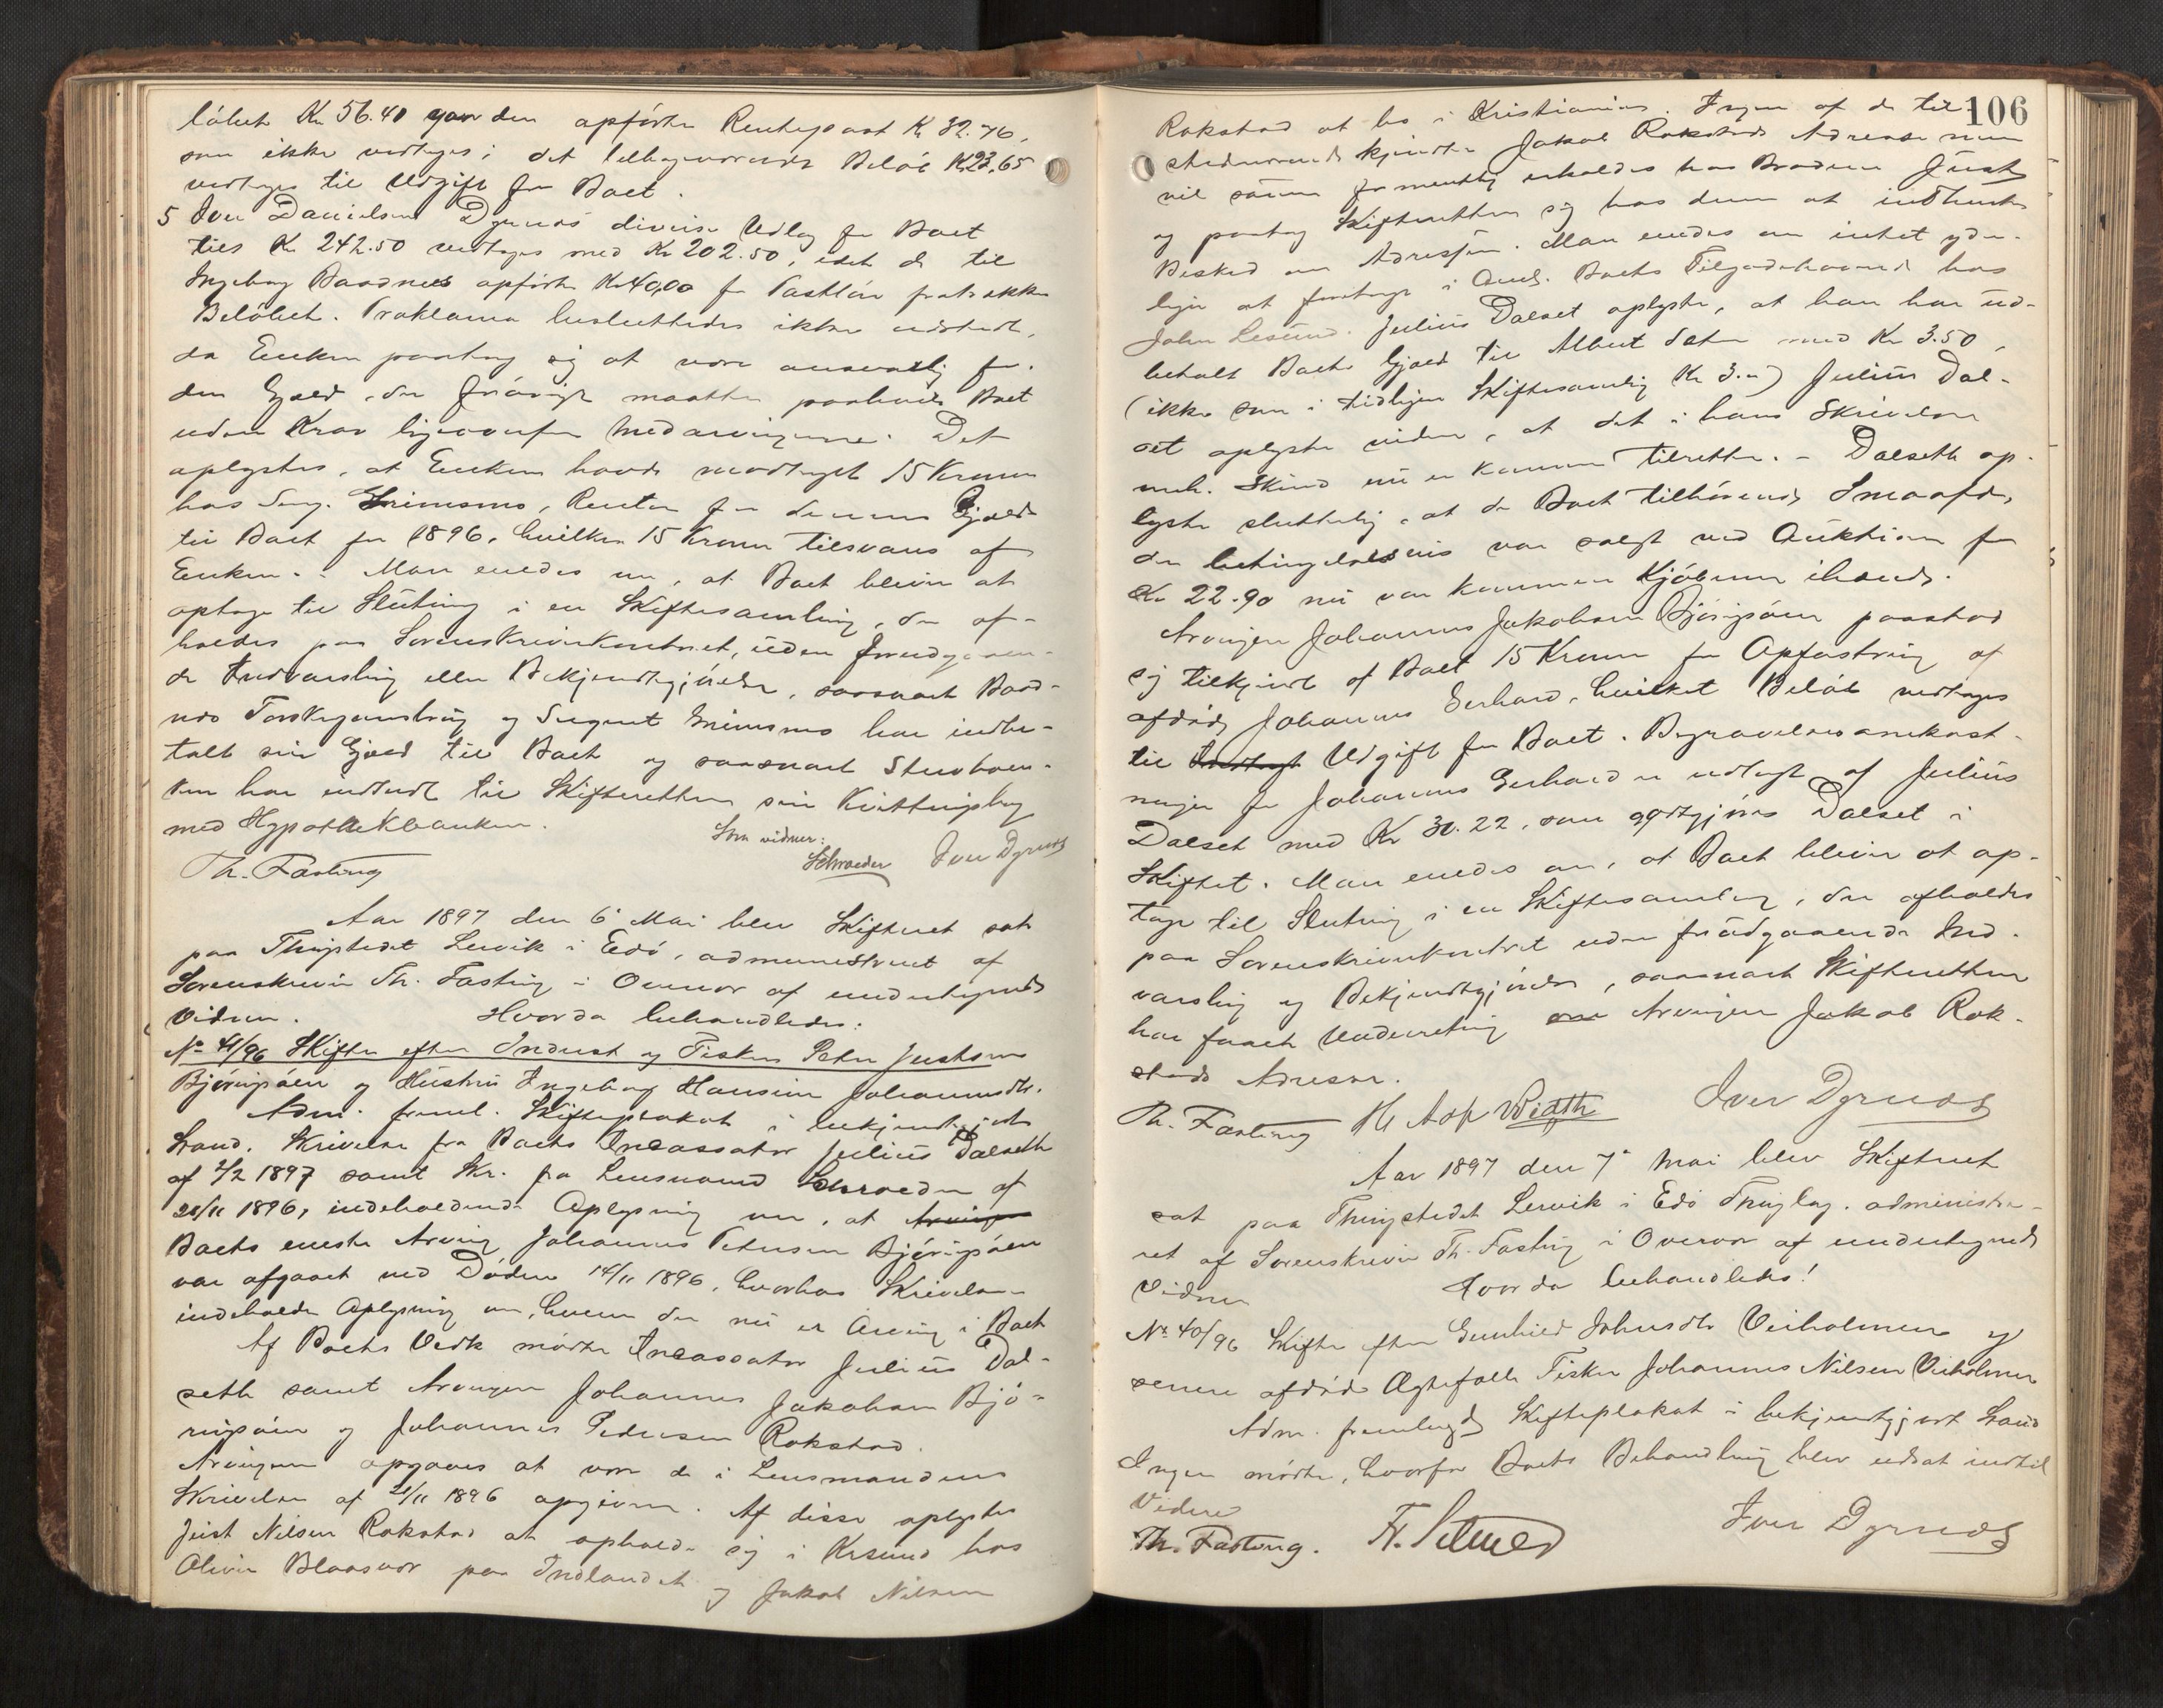 löbet Kr 56.40 den opförte Rentepost Kr 32.76,
som ikke vedtages; det tilbageværende Belöb Kr 23,65
vedtages til Udgift for Boet.
5 Iver Danielsen Dyrnes diverse Udlæg for Boet
tils Kr. 242.50 vedtages med Kr 202.50, idet de til
Ingeborg Baadnes opförte Kr 40,00 for fratrækkes
Belöbet. Proklama besluttedes ikke udstedt,
da Enken paatog sig at være ansvarlig for
den Gjæld, der forövrigt maatte paahvile Boet
uden Krav ligeoverfor Medarvingerne. Det
oplystes, at Enken havde modtaget 15 Kroner
hos Grimsmo, Renter for dennes Gjæld
til Boet for 1896, hvilke 15 Kroner tilsvares af
Enken. Man enedes om, at Boet bliver at
optage til Slutning i en Skiftesamling, der af-
holdes paa Sorenskriverkontoret, uden forudgaaen-
de Indvarsling eller Bekjendtgjörelse, saasnart Baad-
nes og Grimsmo har indbe-
talt sin Gjæld til Boet og saasnart
har indsendt til Skifteretten sin Kvitteringsbog
med Hypothekbanken.
Som vidner:
Th. Fasting Schroeder Iver Dyrnes
Aar 1897 den 6 Mai blev Skifteret sat
paa Thingstedet Leirvik i Edö, administreret af
Sorenskriver Th. Fasting i Overvær af undertegnede
Vidner. Hvorda behandledes:
No 41/96 Skifte efter Inderst og Fisker Peder Justsen
Björnpöien og Hustru Ingeborg Hansine Johannesdtr.
Adm. freml. Skifteplakat i bekjendtgjort
Stand. Skrivelse fra Boets Incassator Julius Dalseth
af 2/2 1897 samt Skr. fra Lensmand Schroeder af
21/11 1896, indeholdende Oplysning om, at Arvinger
Boets eneste Arving Johannes Petersen Björnpöien
var afgaaet ved Döden 14/11 1896, hvorhos Skrivelsen
indeholder Oplysning om, hvem der nu er Arving i Boet
Af Boets Vedk mödte Incassator Julius Dal-
seth samt Arvingen Johannes Jakobsen Bjö-
og Johannes Pedersen Rokstad.
Arvingerne opgaves at være de i Lensmandens
Skrivelse af 21/11 1896 opgivne. Af disse oplystes
Just Nilsen Rokstad at opholde sig i Krsund hos
Oliver Blaasvær paa Indlandet og Jakob Nilsen
106
Rokstad at bo i Kristiania. Ingen af de til
stedeværende kjendte Jakob Rokstads Adresse men
vil samme formentlig erholdes hos Broderen Just
og paatog Skifteretten sig hos denne at indhente
Besked om Adressen. Man enedes om intet yder-
ligere at foretage i Anl. Boets Tilgodehavende hos
John Lesund. Julius Dalset oplyste, at han har ud-
betalt Boets Gjæld til Albert med Kr 3.50,
(ikke som i tidligere Skiftesamling Kr 3.-) Julius Dal-
set oplyste videre, at det i hans Skrivelse
omh. Skind nu er kommen tilrette. - Dalseth op-
lyste sluttelig, at de Boet tilhörende
der betingelsesvis var solgt ved Auktion for
Kr 22.90 nu var kommen Kjöberen ihænde.
Arvingen Johannes Jakobsen paastod
sig tilkjendt af Boet 15 Kroner for Opfostring af
afdöde Johannes Gerhard, hvilket Belöb vedtages
til Udgift for Boet. Begravelsesomkost-
ninger for Johannes Gerhard er udlagt af Julius
Dalset med Kr 30.22, som godtgjöres Dalset i
Skiftet. Man enedes om, at Boet bliver at op-
tage til Slutning i en Skiftesamling, der afholdes
paa Sorenskriverkontoret uden forudgaaende Ind-
varsling og Bekjendtgjörelse, saasnart Skifteretten
har faaet Underretning om Arvingen Jakob Rok-
stads Adresse.
Th. Fasting Width Iver Dyrnes
Aar 1897 den 7 Mai blev Skifteret
sat paa Thingstedet Leirvik i Edö Thinglag, administre-
ret af Sorenskriver Th. Fasting i Overvær af undertegnede
Vidner Hvorda behandledes!
No 40/96 Skifte efter Gunhild Johnsdtr Veiholmen og
senere afdöde Ægtefælle Fisker Johannes Nilsen Veiholmen
Adm. fremlagde Skifteplakat i bekjendtgjort Stand
Ingen mödte, hvorfor Boets Behandling blev udsat indtil
Videre
Th. Fasting. Iver Dyrnes